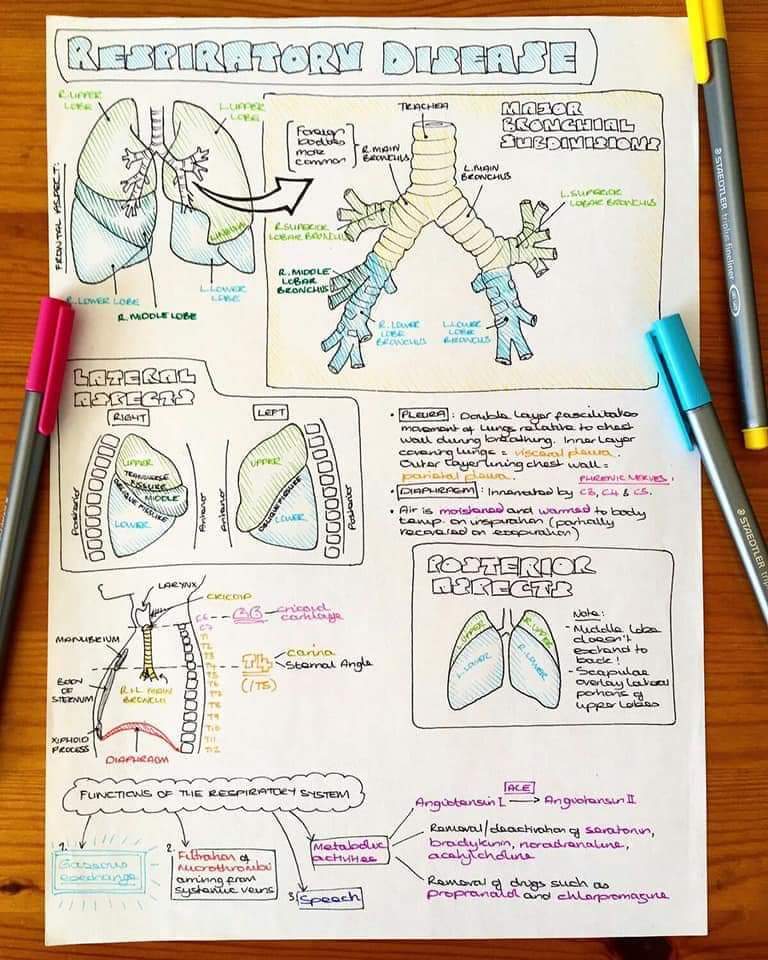 RESPIRATORY DISEASE
R.UPPER
LOBE
L.UPPER
LOBE
FRONTAL ASPECT:
LINGULA
R.LOWER LOBE
L.LOWER
LOBE
R.MIDDLE LOBE
MAJOR
BRONCHIAL
SUBDIVISIONS
TRACHEA
Foreign
bodies
more
common
R.MAIN
BRONCHUS
L.MAIN
BRONCHUS
R.SUPERIOR
LOBAR BRONCHUS
L.SUPERIOR
LOBAR BRONCHUS
R.MIDDLE
LOBAR
BRONCHUS
R.LOWER
LOBE
BRONCHUS
L.LOWER
LOBE
BRONCHUS
LATERAL
ASPECTS
RIGHT
LEFT
UPPER
TRANSVERSE
FISSURE
MIDDLE
OBLIQUE FISSURE
LOWER
Posterior
Anterior
Anterior
UPPER
OBLIQUE FISSURE
LOWER
Posterior
• PLEURA : Double layer fascilitates
movement of lungs relative to chest
wall during breathing. Inner layer
covering lungs = visceral pleura.
Outer layer lining chest wall =
parietal pleura.
PHRENIC NERVES:
• DIAPHRAGM : Innervated by C3, C4 & C5.
• Air is moistened and warmed to body
temp. on inspiration (partially
recovered on expiration)
POSTERIOR
ASPECTS
L.UPPER
R.UPPER
L.LOWER
R.LOWER
Note:
- Middle lobe
doesn't
extend to
back!
- Scapulae
overlay lateral
portions of
upper lobes
LARYNX
CRICOID
C6
C7
T1
T2
T3
T4
T5
T6
T7
T8
T9
T10
T11
T12
C6 - cricoid
cartilage
MANUBRIUM
T4
(/T5)
carina
Sternal Angle
BODY OF
STERNUM
R+L MAIN
BRONCHI
XIPHOID
PROCESS
DIAPHRAGM
FUNCTIONS OF THE RESPIRATORY SYSTEM
1.
Gaseous
exchange
2.
Filtration of
microthrombi
arising from
systemic veins
3.
Speech
Metabolic
activities
ACE
Angiotensin I → Angiotensin II
Removal/deactivation of serotonin,
bradykinin, noradrenaline,
acetylcholine
Removal of drugs such as
propranolol and chlorpromazine
STAEDTLER triplus fineliner
STAEDTLER
STAEDTLER